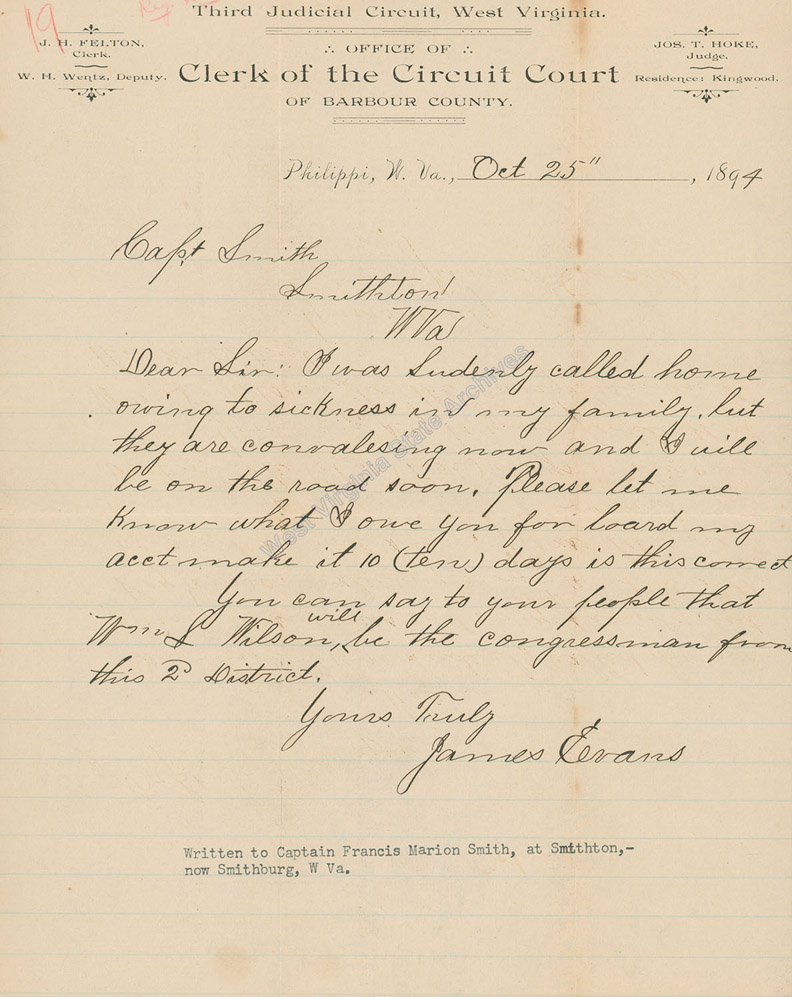 19
Third Judicial Circuit, West Virginia.
J. H. FELTON,
Clerk.
W. H. Wentz, Deputy.
∴ OFFICE OF ∴
Clerk of the Circuit Court
OF BARBOUR COUNTY.
JOS. T. HOKE,
Judge.
Residence: Kingwood.
Philippi, W. Va., Oct 25", 1894
Capt Smith
Smithton
W Va
Dear Sir: I was Sudenly called home
owing to sickness in my family, but
they are convalesing now and I will
be on the road soon. Please let me
know what I owe you for board my
acct make it 10 (ten) days is this correct
You can say to your people that
Wm L Wilson, will be the congressman from
this 2d District.
Yours Truly
James Evans
Written to Captain Francis Marion Smith, at Smithton,-
now Smithburg, W Va.
West Virginia State Archives